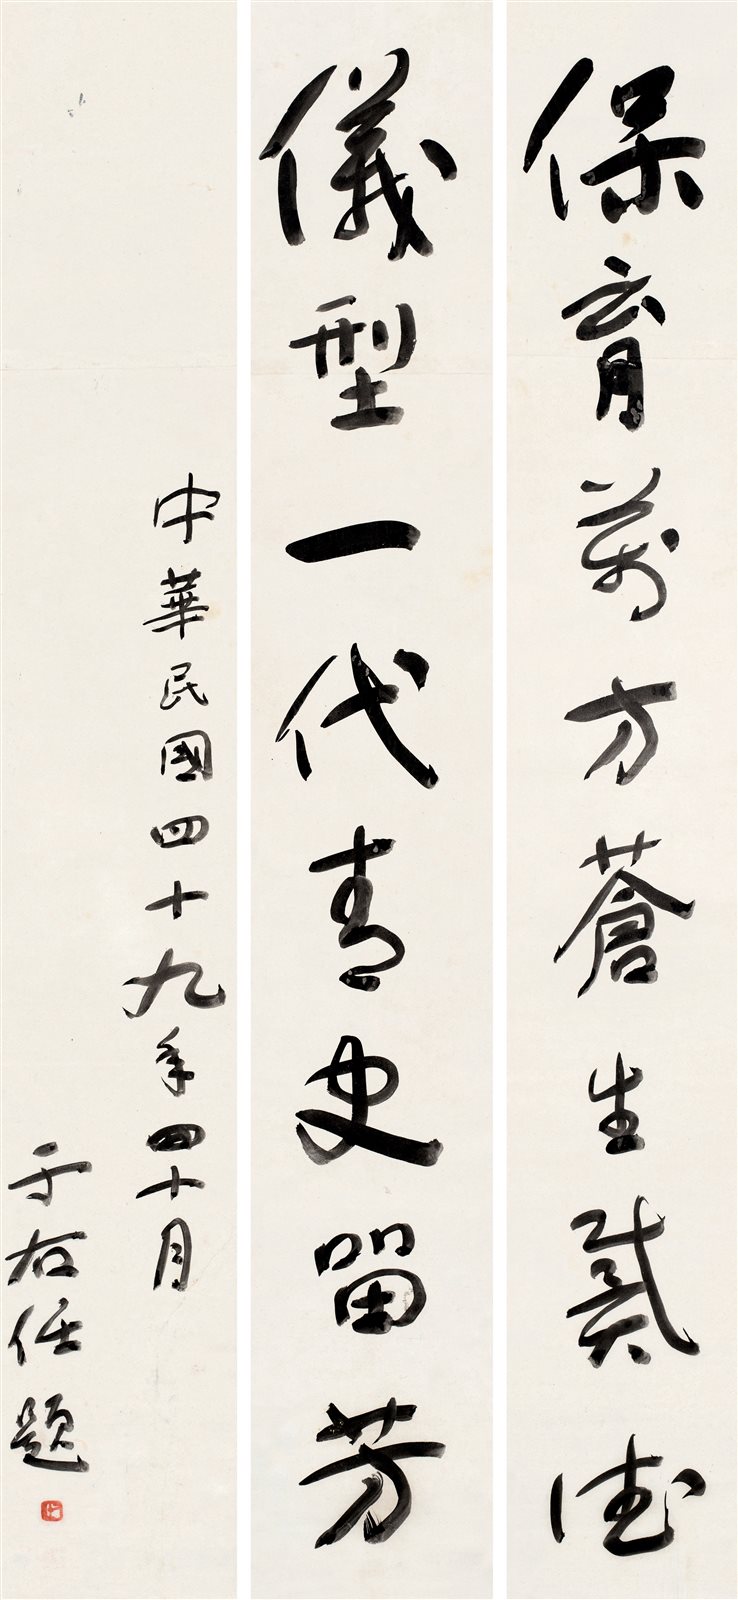 保育萬方蒼生戴德
儀型一代青史留芳
中華民國四十九年四十月
于右任題